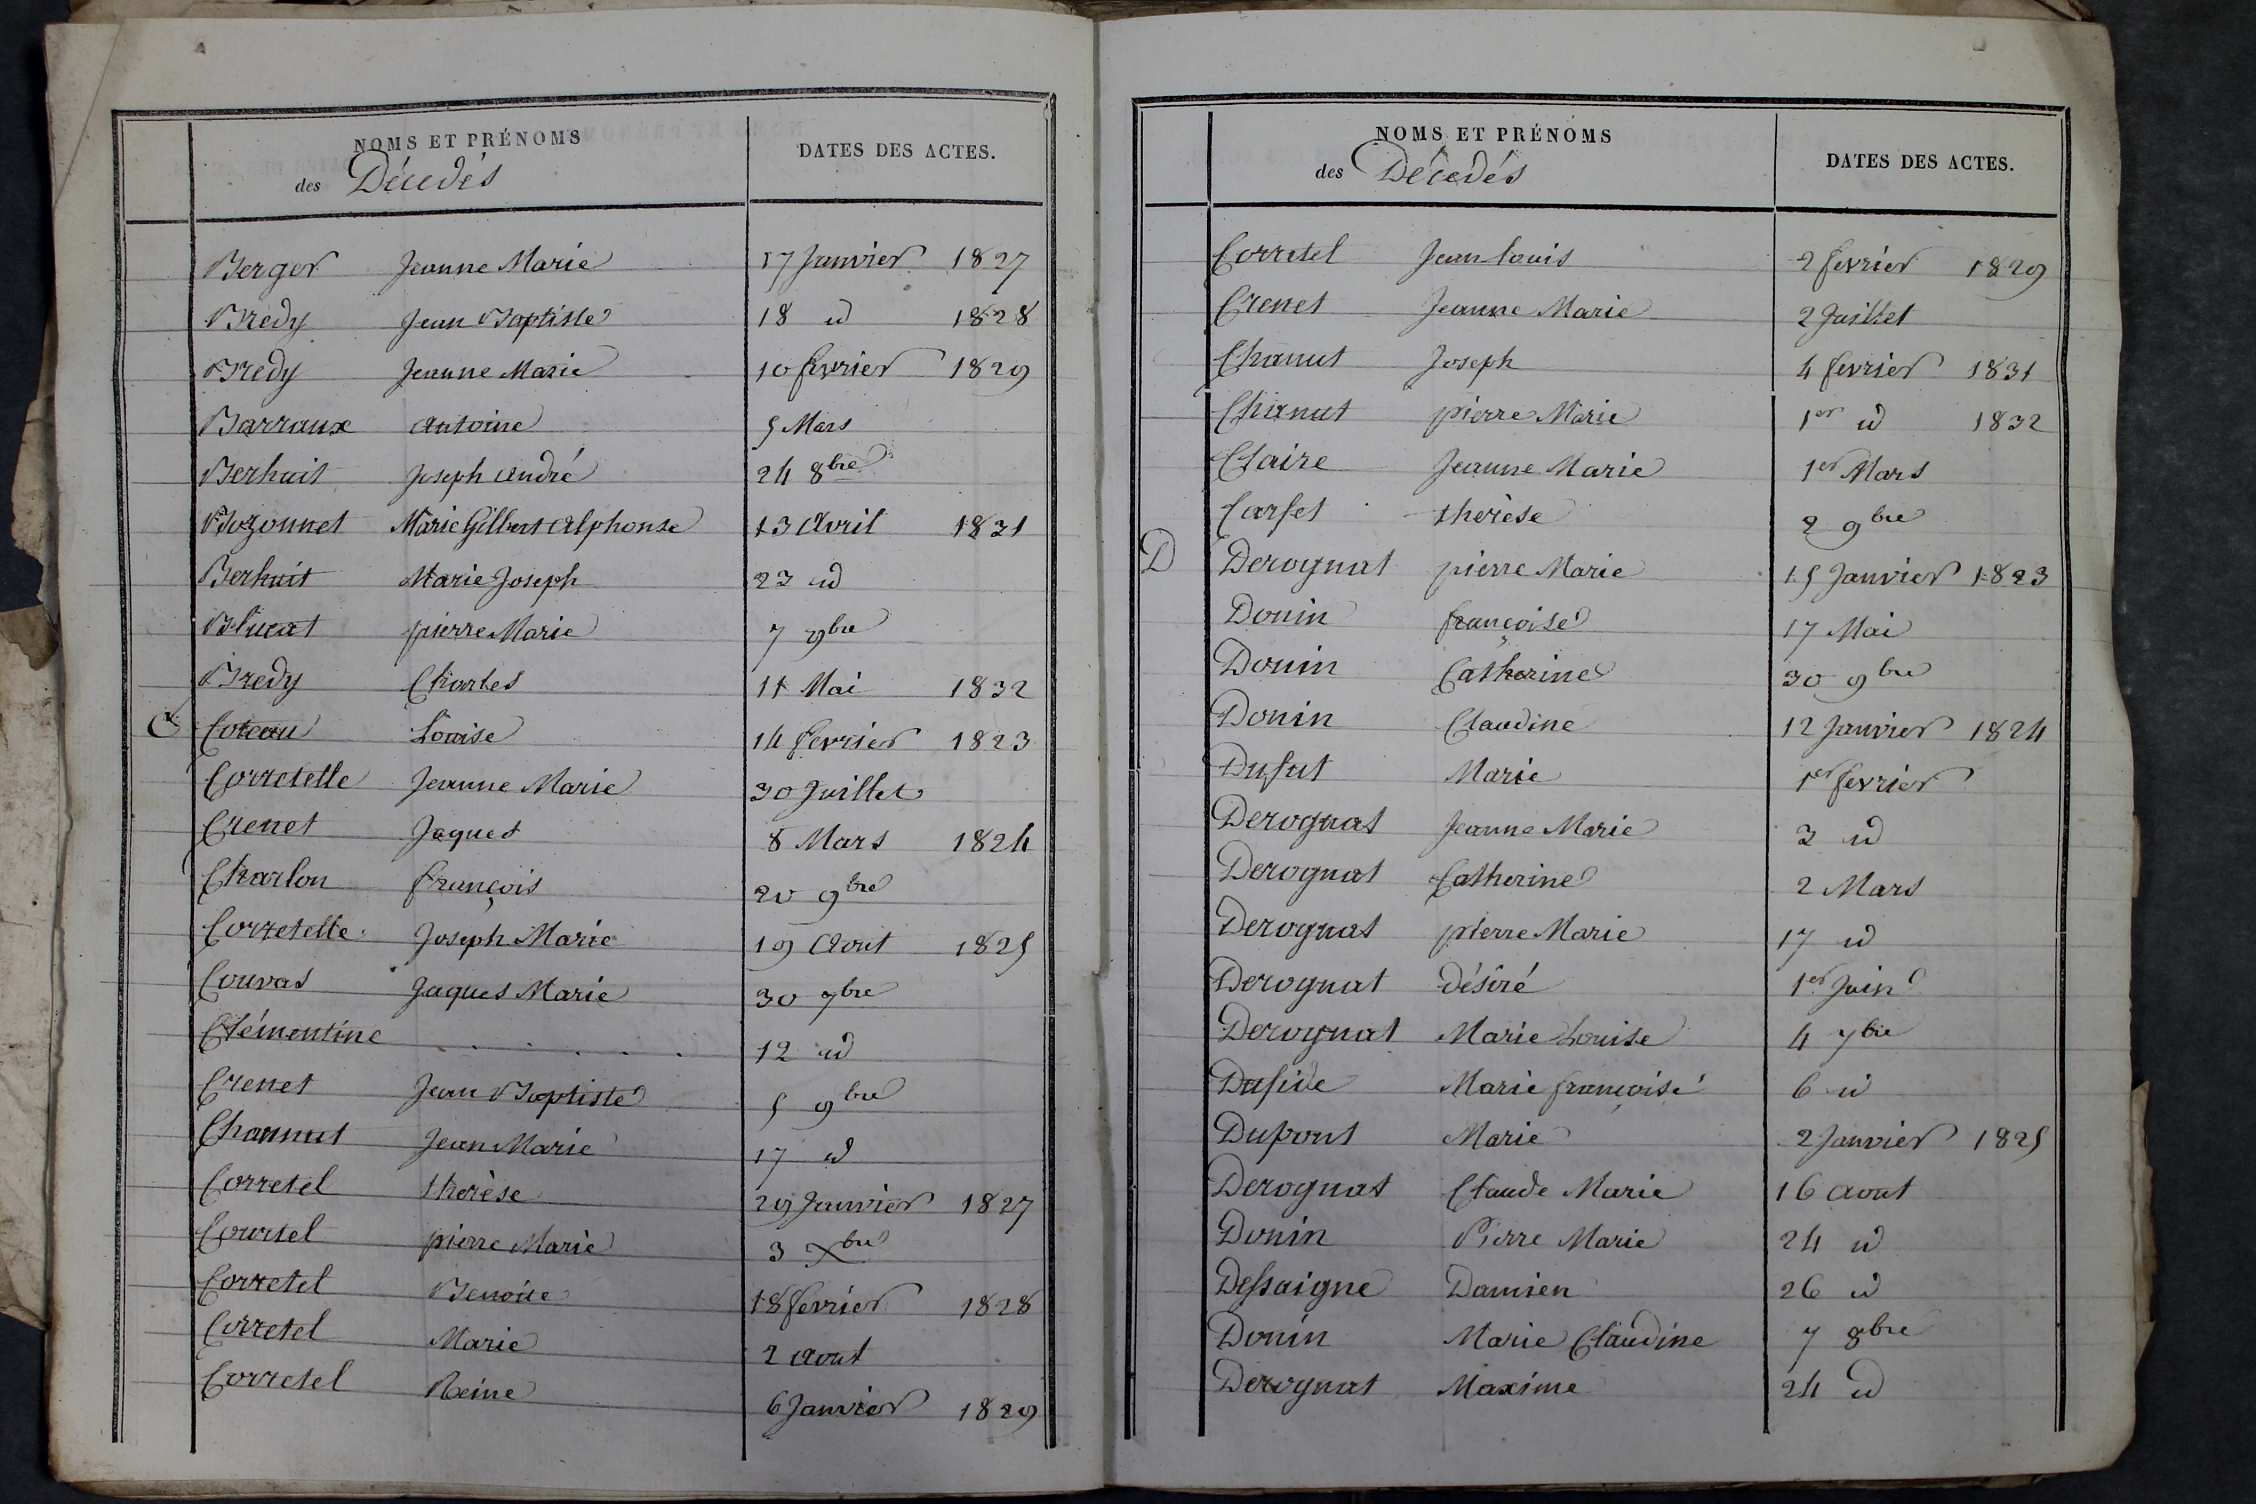 NOMS ET PRÉNOMS
des Décedés
DATES DES ACTES.
Berger Jeanne Marie 17 Janvier 1827
Bredy Jean Baptiste 18 id 1828
Bredy Jeanne Marie 10 fevrier 1829
Barraux Antoine 5 Mars
Berhuit Joseph André 24 8bre
Bozonnet Marie Gilbert Alphonse 13 Avril 1831
Berhuit Marie Joseph 23 id
Blucat pierre Marie 7 9bre
Bredy Charles 11 Mai 1832
C Coteau Louise 14 fevrier 1823
Corretelle Jeanne Marie 30 Juillet
Crenet Jaques 8 Mars 1824
Charlon françois 20 9bre
Corretelle Joseph Marie 19 Aout 1825
Couvas Jaques Marie 30 7bre
Clémentine . . . . . 12 id
Crenet Jean Baptiste 5 9bre
Channut Jean Marie 17 id
Corretel thérèse 29 Janvier 1827
Courtel pierre Marie 3 Xbre
Corretel Benoite 18 fevrier 1828
Corretel Marie 2 Aout
Corretel Reine 6 Janvier 1829
NOMS ET PRÉNOMS
des Décedés
DATES DES ACTES.
Corretel Jean Louis 2 fevrier 1829
Crenet Jeanne Marie 2 Juillet
Chanut Joseph 4 fevrier 1831
Chanut pierre Marie 1er id 1832
Claire Jeanne Marie 1er Mars
Carset thérèse 2 9bre
D Derognat pierre Marie 15 Janvier 1823
Donin françoise 17 Mai
Donin Catherine 30 9bre
Donin Claudine 12 Janvier 1824
Dufut Marie 1er fevrier
Derognat Jeanne Marie 3 id
Derognat Catherine 2 Mars
Derognat pierre Marie 17 id
Derognat Désiré 1er Juin
Derognat Marie Louise 4 7bre
Marie françoise 6 id
Dupont Marie 2 Janvier 1825
Derognat Claude Marie 16 aout
Donin Pierre Marie 24 id
Dessaigne Damien 26 id
Donin Marie Claudine 7 8bre
Derognat Maxime 24 id